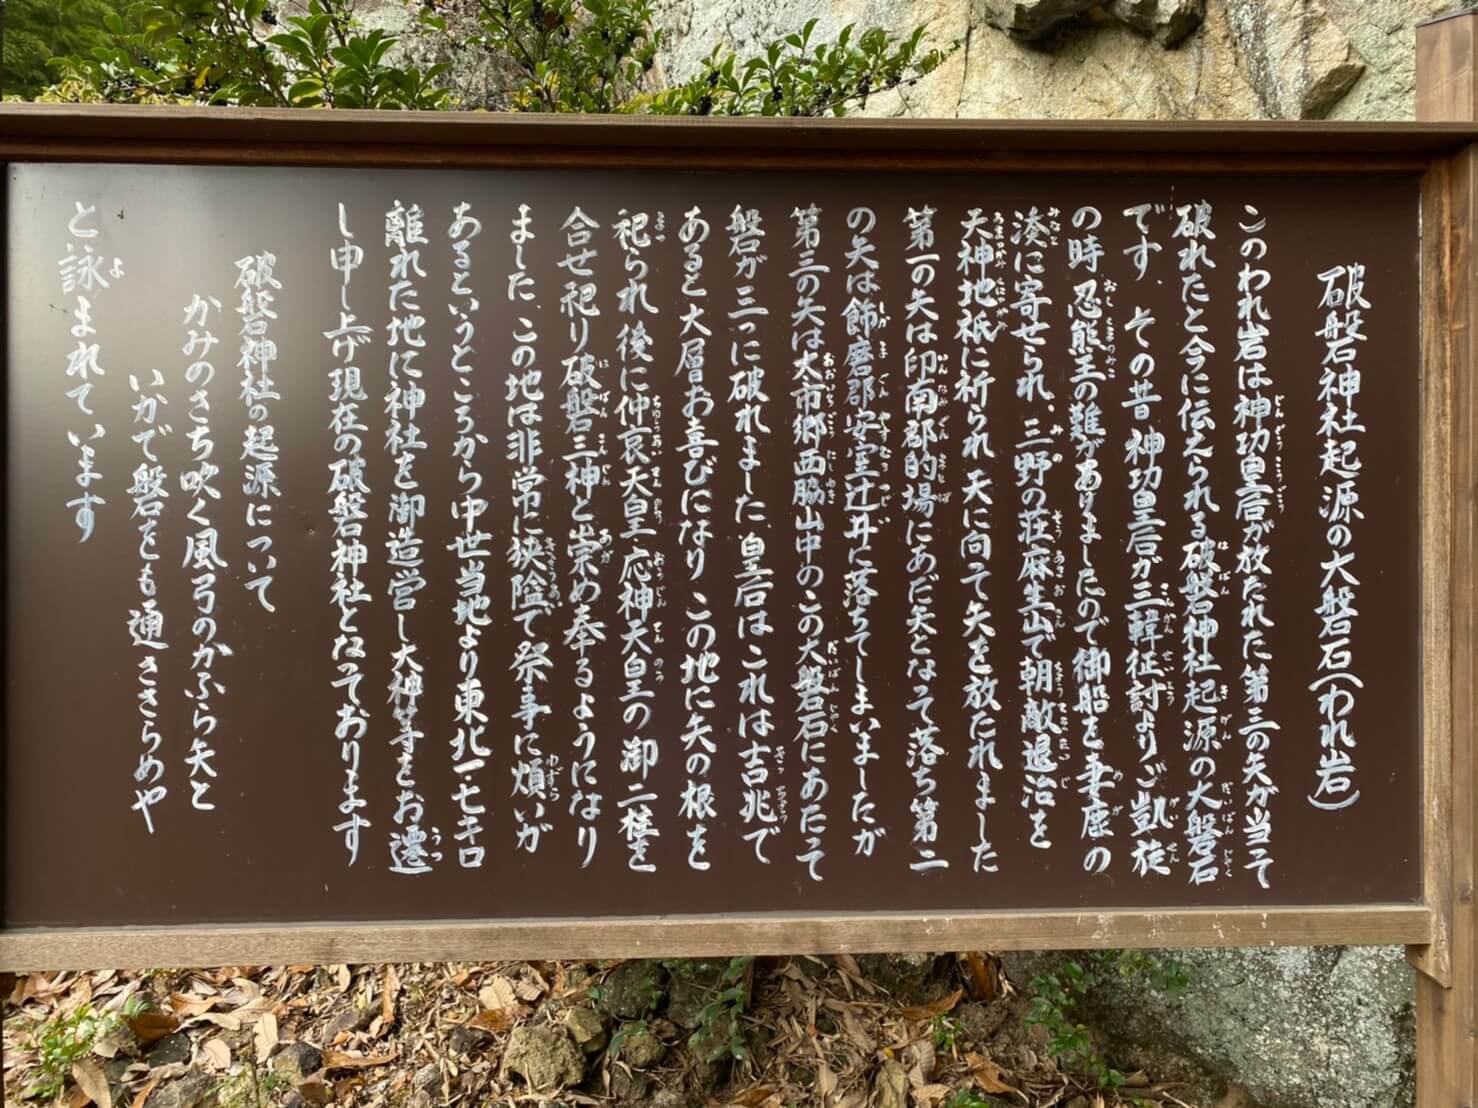 破磐石神社起源の大磐石(われ岩)
このわれ岩は神功皇后が放たれた第三の矢が当って
破れたと今に伝えられる破磐石神社起源の大磐石
です。その昔 神功皇后が三韓征討よりご凱旋
の時 忍熊王の難がありましたので御船を妻鹿の
湊に寄せられ、三野の荘麻生山で朝敵退治を
天神地祇に祈られ天に向って矢を放たれました
第一の矢は印南郡的場にあだ矢となって落ち第二
の矢は飾磨郡安室辻井に落ちてしまいましたが
第三の矢は大市郷西脇山中のこの大磐石にあたって
磐が三つに破れました。皇后はこれは吉兆で
あると大層お喜びになり この地に矢の根を
祀られ 後に仲哀天皇・応神天皇の御二柱を
合せ祀り破磐三神と崇め奉るようになり
ました。この地は非常に狭隘で祭事に煩いが
あるというところから中世当地より東北一・七キロ
離れた地に神社を御造営し大神等をお遷
し申し上げ現在の破磐石神社となっております
破磐石神社の起源について
かみのさち吹く風弓のかふら矢と
いかで磐をも通ささらめや
と詠まれています